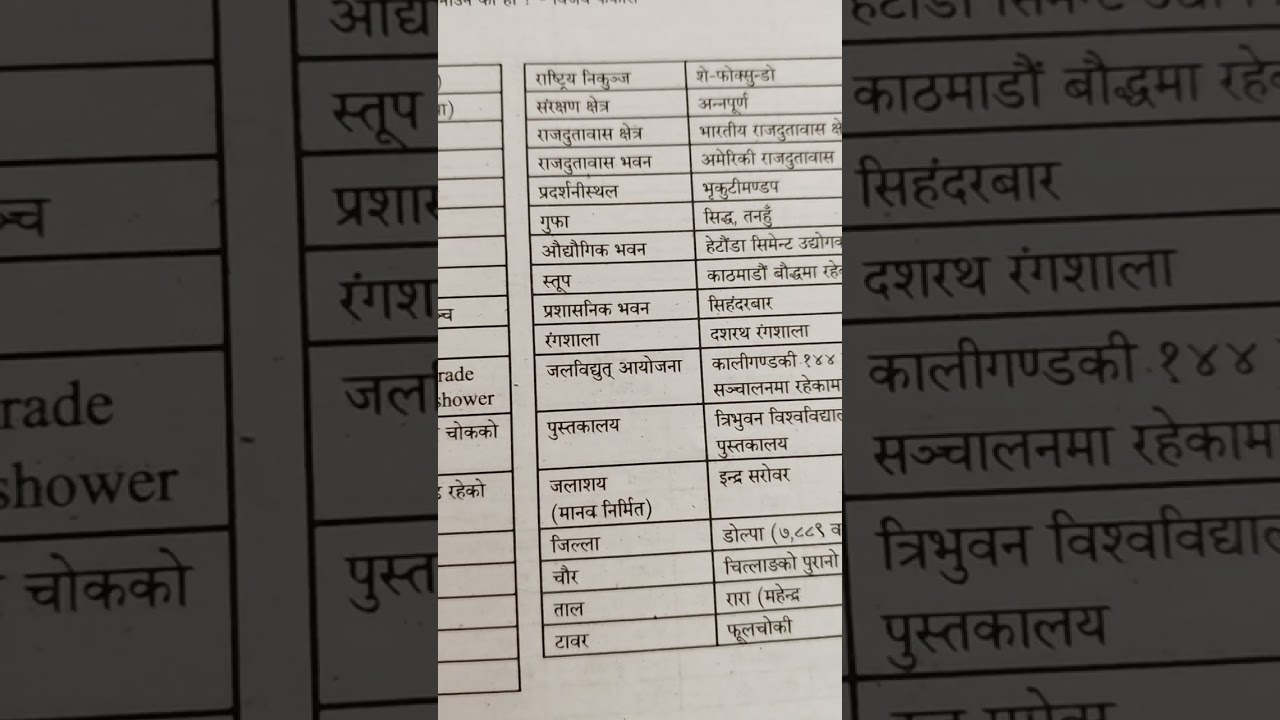 राष्ट्रिय निकुञ्ज शे-फोक्सुन्डो
संरक्षण क्षेत्र अन्नपूर्ण
राजदुतावास क्षेत्र भारतीय राजदुतावास
राजदुतावास भवन अमेरिकी राजदुतावास
प्रदर्शनीस्थल भृकुटीमण्डप
गुफा सिद्ध, तनहुँ
औद्यौगिक भवन हेटौंडा सिमेन्ट
स्तूप काठमाडौं बौद्धमा
प्रशासनिक भवन सिहंदरबार
रंगशाला दशरथ रंगशाला
जलविद्युत् आयोजना कालीगण्डकी १४४
सञ्चालनमा रहेकामा
पुस्तकालय त्रिभुवन
पुस्तकालय
जलाशय इन्द्र सरोवर
(मानव निर्मित)
जिल्ला डोल्पा (७,८८९
चौर चित्लाङको पुरानो
ताल रारा (महेन्द्र
टावर फूलचोकी
rade
shower
चोकको
रहेको